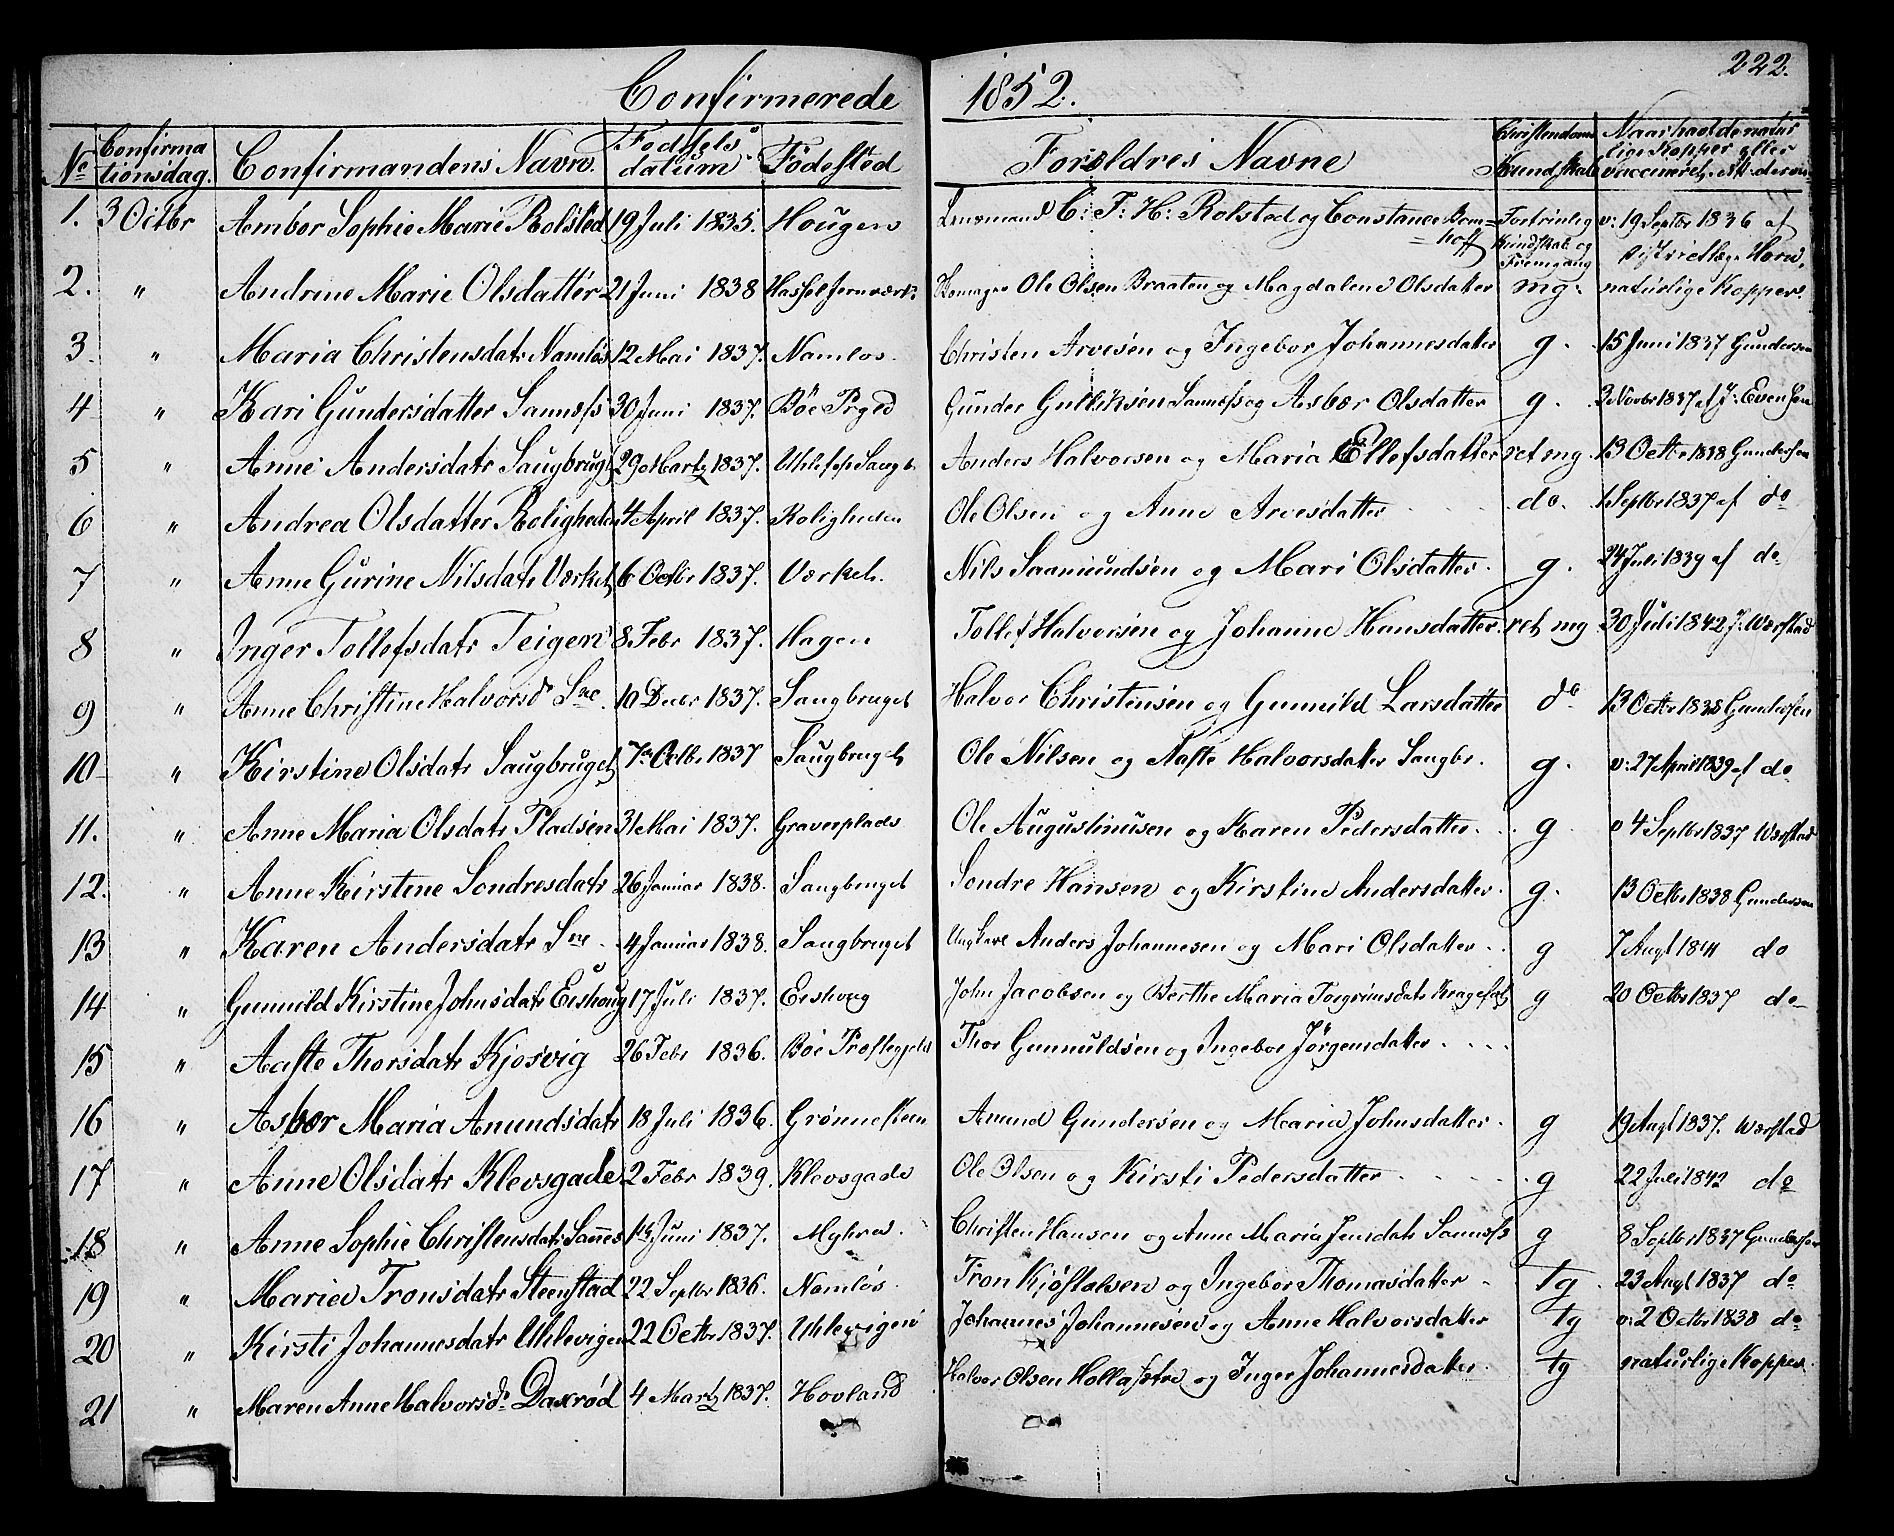 222.
Confirmerede 1852.
No Confirmationsdag. Confirmandens Navn. Fødsels datum Födested Forældres Navne Christendoms Kundskab Naar havt de naturlige Kopper eller vaccineret
1. 3 Octbr Ambor Sophie Marie Rolsted 19 Juli 1835. Hougen Lensmand C: F: H: Rolsted og Constance Bom=
=hoff Fortrinlig Kundskab og Fremgang v: 19 Septbr 1836 af
2. " Andrine Marie Olsdatter 21 Juni 1838 Hassel Jernværk Ole Olsen Braaten og Magdalene Olsdatter mg. naturlige Kopper.
3. " Maria Christensdatr Namløs 12 Mai 1837. Namløs. Christen Arvesen og Ingebor Johannesdatter g. 15 Juni 1837 Gundersen
4 " Kari Gundersdatter Sanness 30 Juni 1837. Böe Prgd Gunder Gulliksen Sanness og Asbor Olsdatter g. 3 Novbr 1837 af J: Evensen
5 " Anne Andersdatr Saugbruget 29 Martz 1837. Uhlefos Saugb Anders Halvorsen og Maria Ellefsdatter ret mg. 13 Octbr 1838 Gundersen
6 " Andrea Olsdatter Roligheden 4 April 1837. Roligheden Ole Olsen og Anne Arvesdatter do. 1 Septbr 1837 af do
7 " Anne Gurine Nilsdatr Værket 6 Octbr 1837. Værket. Nils Saamundsen og Mari Olsdatter. g. 24 Juli 1839 af do
8 " Inger Tollefsdatr Teigen 8 Febr 1837. Hagen Tollef Halvorsen og Johanne Hansdatter. ret mg 30 Juli 1842 J: Wærstad
9 " Anne Christine Halvorsd Sne. 10 Decbr 1837. Saugbruget Halvor Christensen og Gunnild Larsdatter do 13 Octbr 1838 Gundersen
10 " Kirstine Olsdatr Saugbruget 7 Octbr 1837 Saugbruget Ole Nilsen og Aaste Halvorsdatter Saugbr. g. v: 27 April 1839 af do
11. " Anne Maria Olsdatr Pladsen 31 Mai 1837. Graverplads Ole Augustinusen og Karen Pedersdatter. g v 4 Septbr 1837 Wærstad
12. " Anne Kirstine Sondresdatr 26 Januar 1838. Saugbruget Sondre Hansen og Kirstine Andersdatter. g. 13 Octbr 1838 Gundersen
13 " Karen Andersdatr Sne. 4 Januar 1838. Saugbruget Ungkarl Anders Johannesen og Mari Olsdatter. g 7 Augt 1841 do
14 " Gunnild Kirstine Johnsdatr Eishoug 17 Juli 1837. Eishoug John Jacobsen og Berthe Maria Torgrimsdatr g 20 Octbr 1837 do
15 " Aaste Thorsdatr Kjosvig 26 Febr 1836. Böe Prostegjeld Thor Gunnuldsen og Ingebor Jørgensdatter.
16 " Asbor Maria Anundsdatr 18 Juli 1836. Grønnesteen Anund Gundersen og Maria Johnsdatter. g 19 Augt 1837. Wærstad
17 " Anne Olsdatr Klevsgade 2 Febr 1839. Klevsgade Ole Olsen og Kirsti Pedersdatter g 22 Juli 1842 do
18 " Anne Sophie Christensdatr Sannes Juni 1837. Myhren. Christen Hansen og Anne Maria Jensdatr Sanness g 8 Septbr 1837 Gundersen
19 " Maria Tronsdatr Steenstad 22 Septbr 1836. Namløs. Tron Kjøstelsen og Ingebor Thomasdatter tg 23 Augt 1837 do
20 " Kirsti Johannesdatr Uhlevigen 22 Octbr 1837. Uhlevigen Johannes Johannesen og Anne Halvorsdatter tg v: 2 Octbr 1838 do
21 " Maren Anne Halvorsd. Daxrød 4 Martz 1837. Hovland Halvor Olsen Hollasætre og Inger Johannesdatter. tg naturlige Kopper.